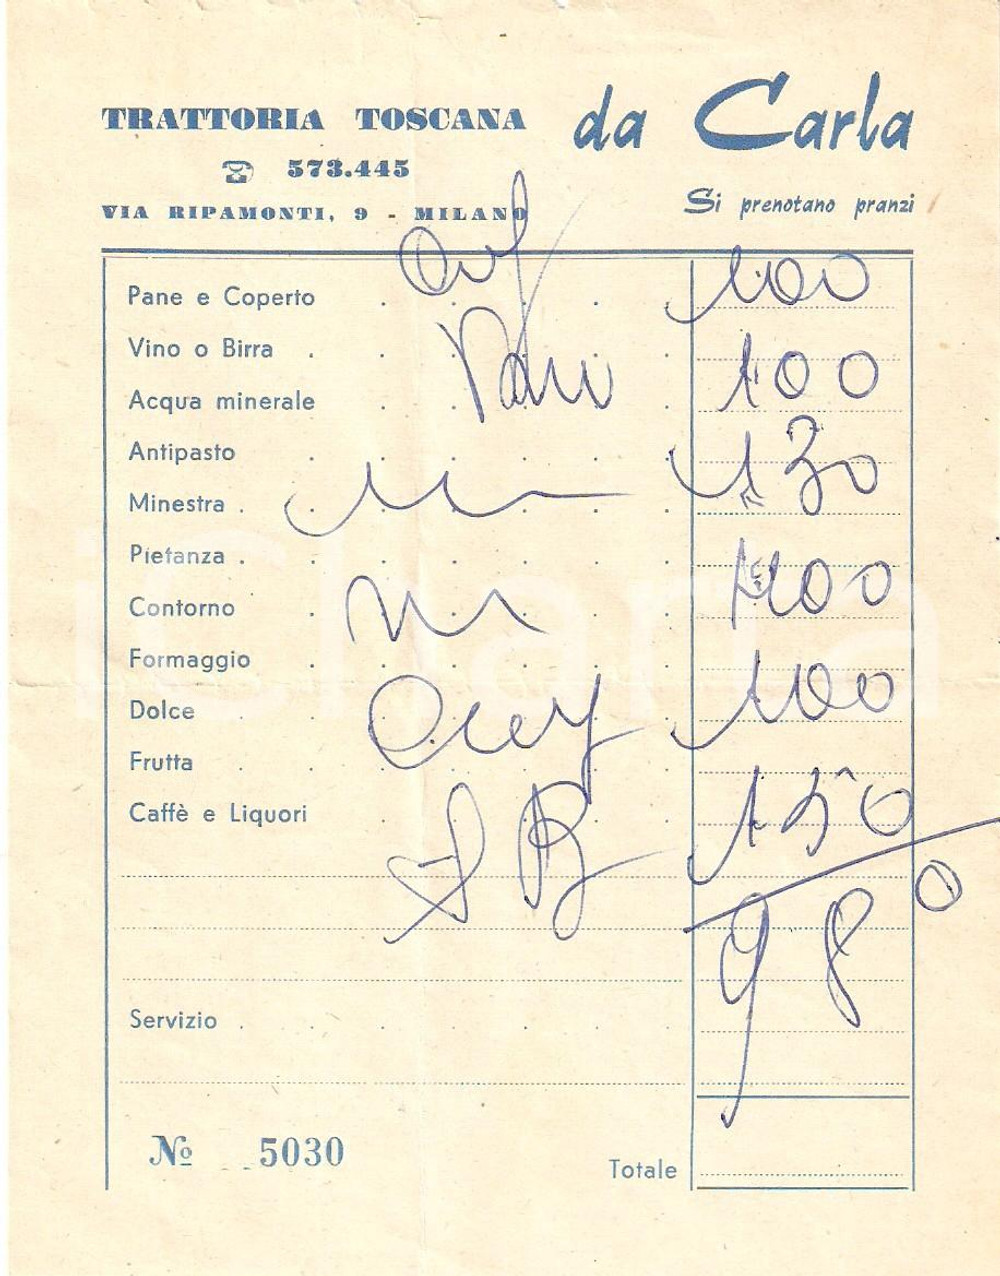 TRATTORIA TOSCANA da Carla
☎ 573.445
VIA RIPAMONTI, 9 - MILANO
Si prenotano pranzi
Pane e Coperto . 100
Vino o Birra
Acqua minerale 100
Antipasto
Minestra 130
Pietanza
Contorno
Formaggio
Dolce 100
Frutta
Caffè e Liquori 150
980
Servizio
Nº 5030
Totale
iCharta